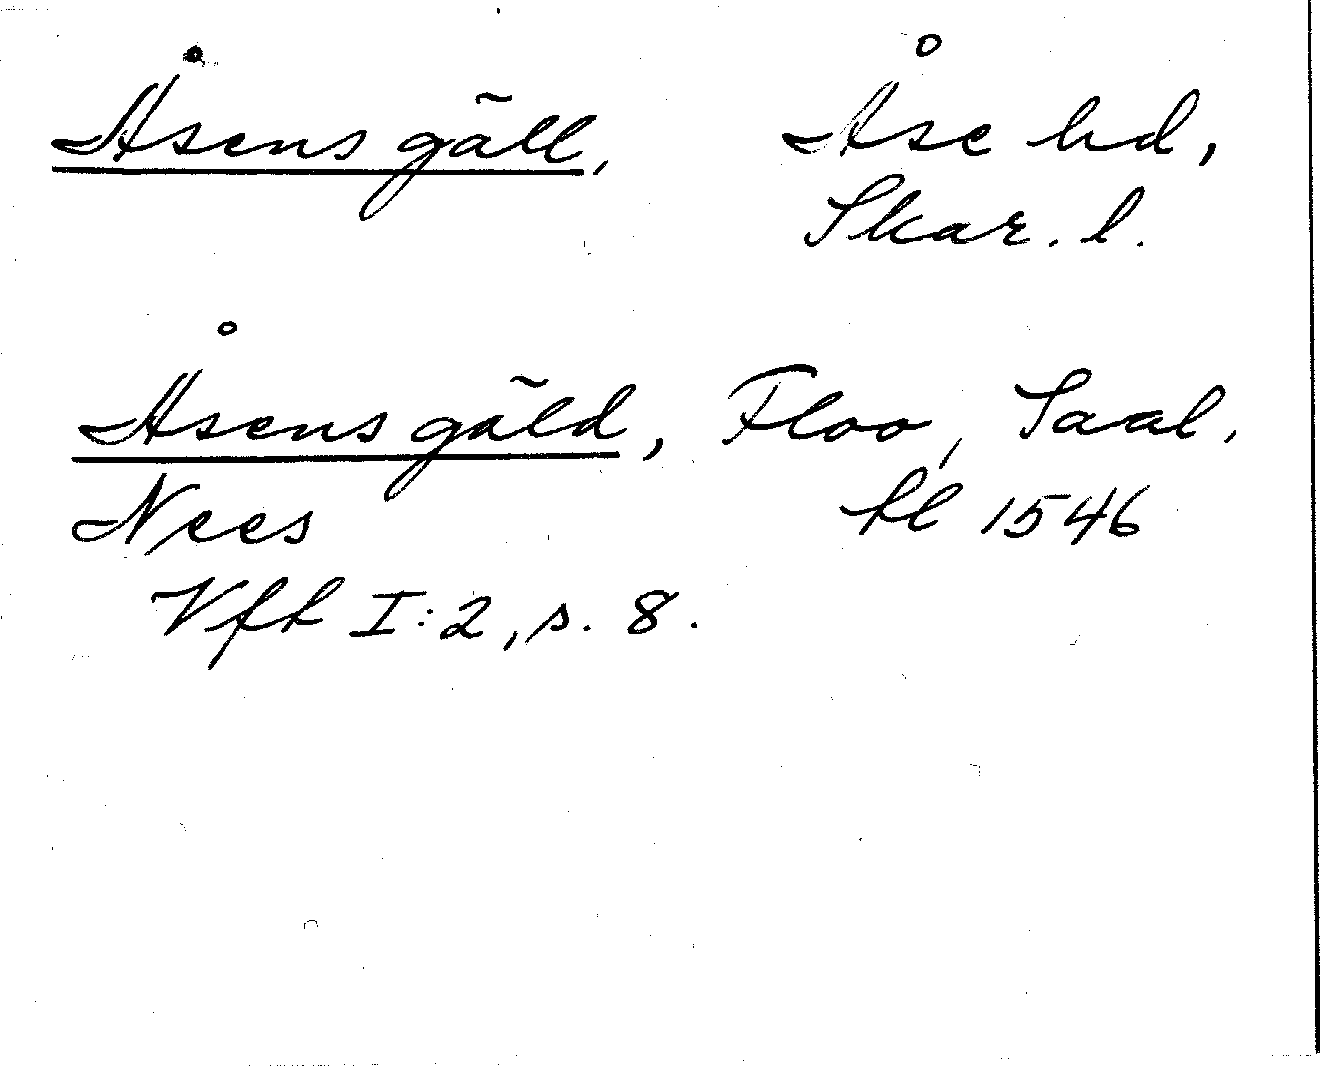 Åsens gäll, Åse hd,
Skar. l.
Åsens gäld, Floo, Saal,
Nees fl 1546
Vft I:2, s. 8.